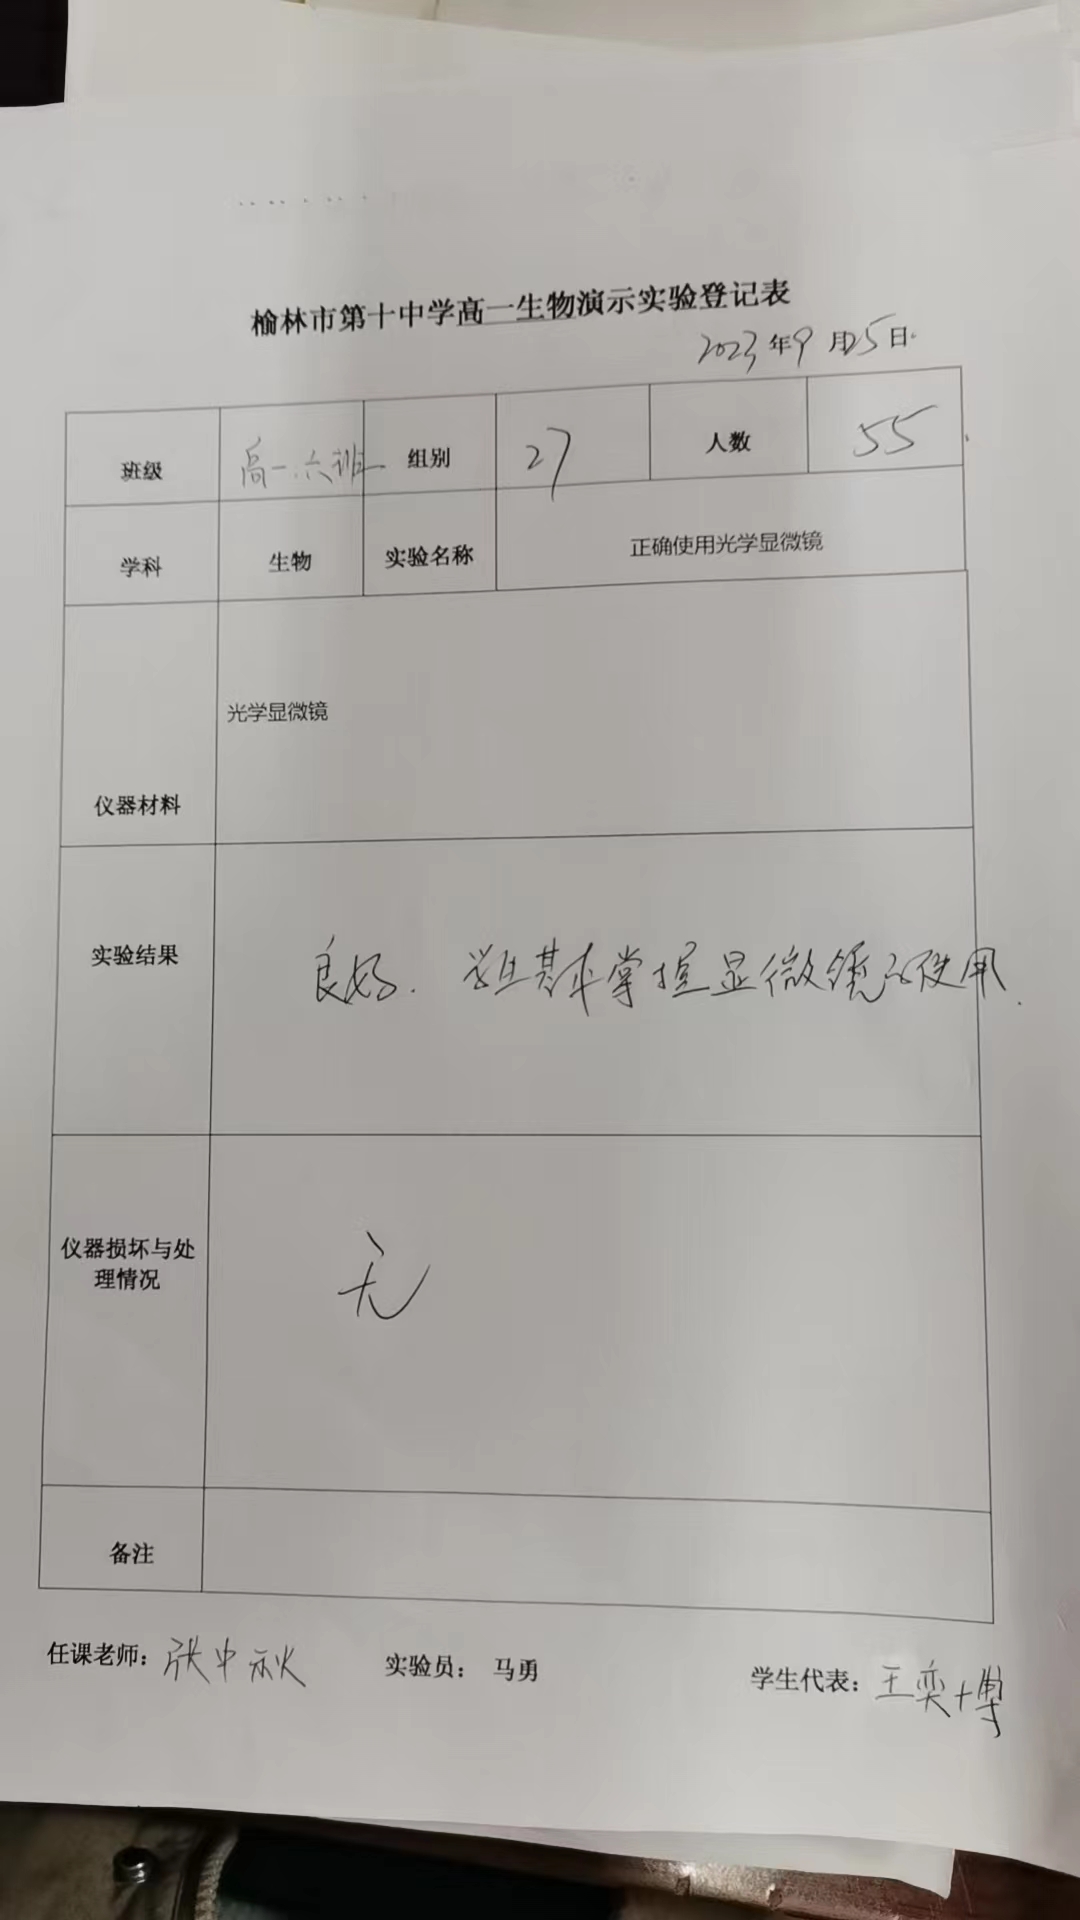 榆林市第十中学高一生物演示实验登记表
2023年9月25日
班级 高一.六班 组别 27 人数 55
学科 生物 实验名称 正确使用光学显微镜
光学显微镜
仪器材料
实验结果 良好. 学生基本掌握显微镜的使用.
仪器损坏与处
理情况
无
备注
任课老师：张中秋 实验员：马勇 学生代表：王奕博